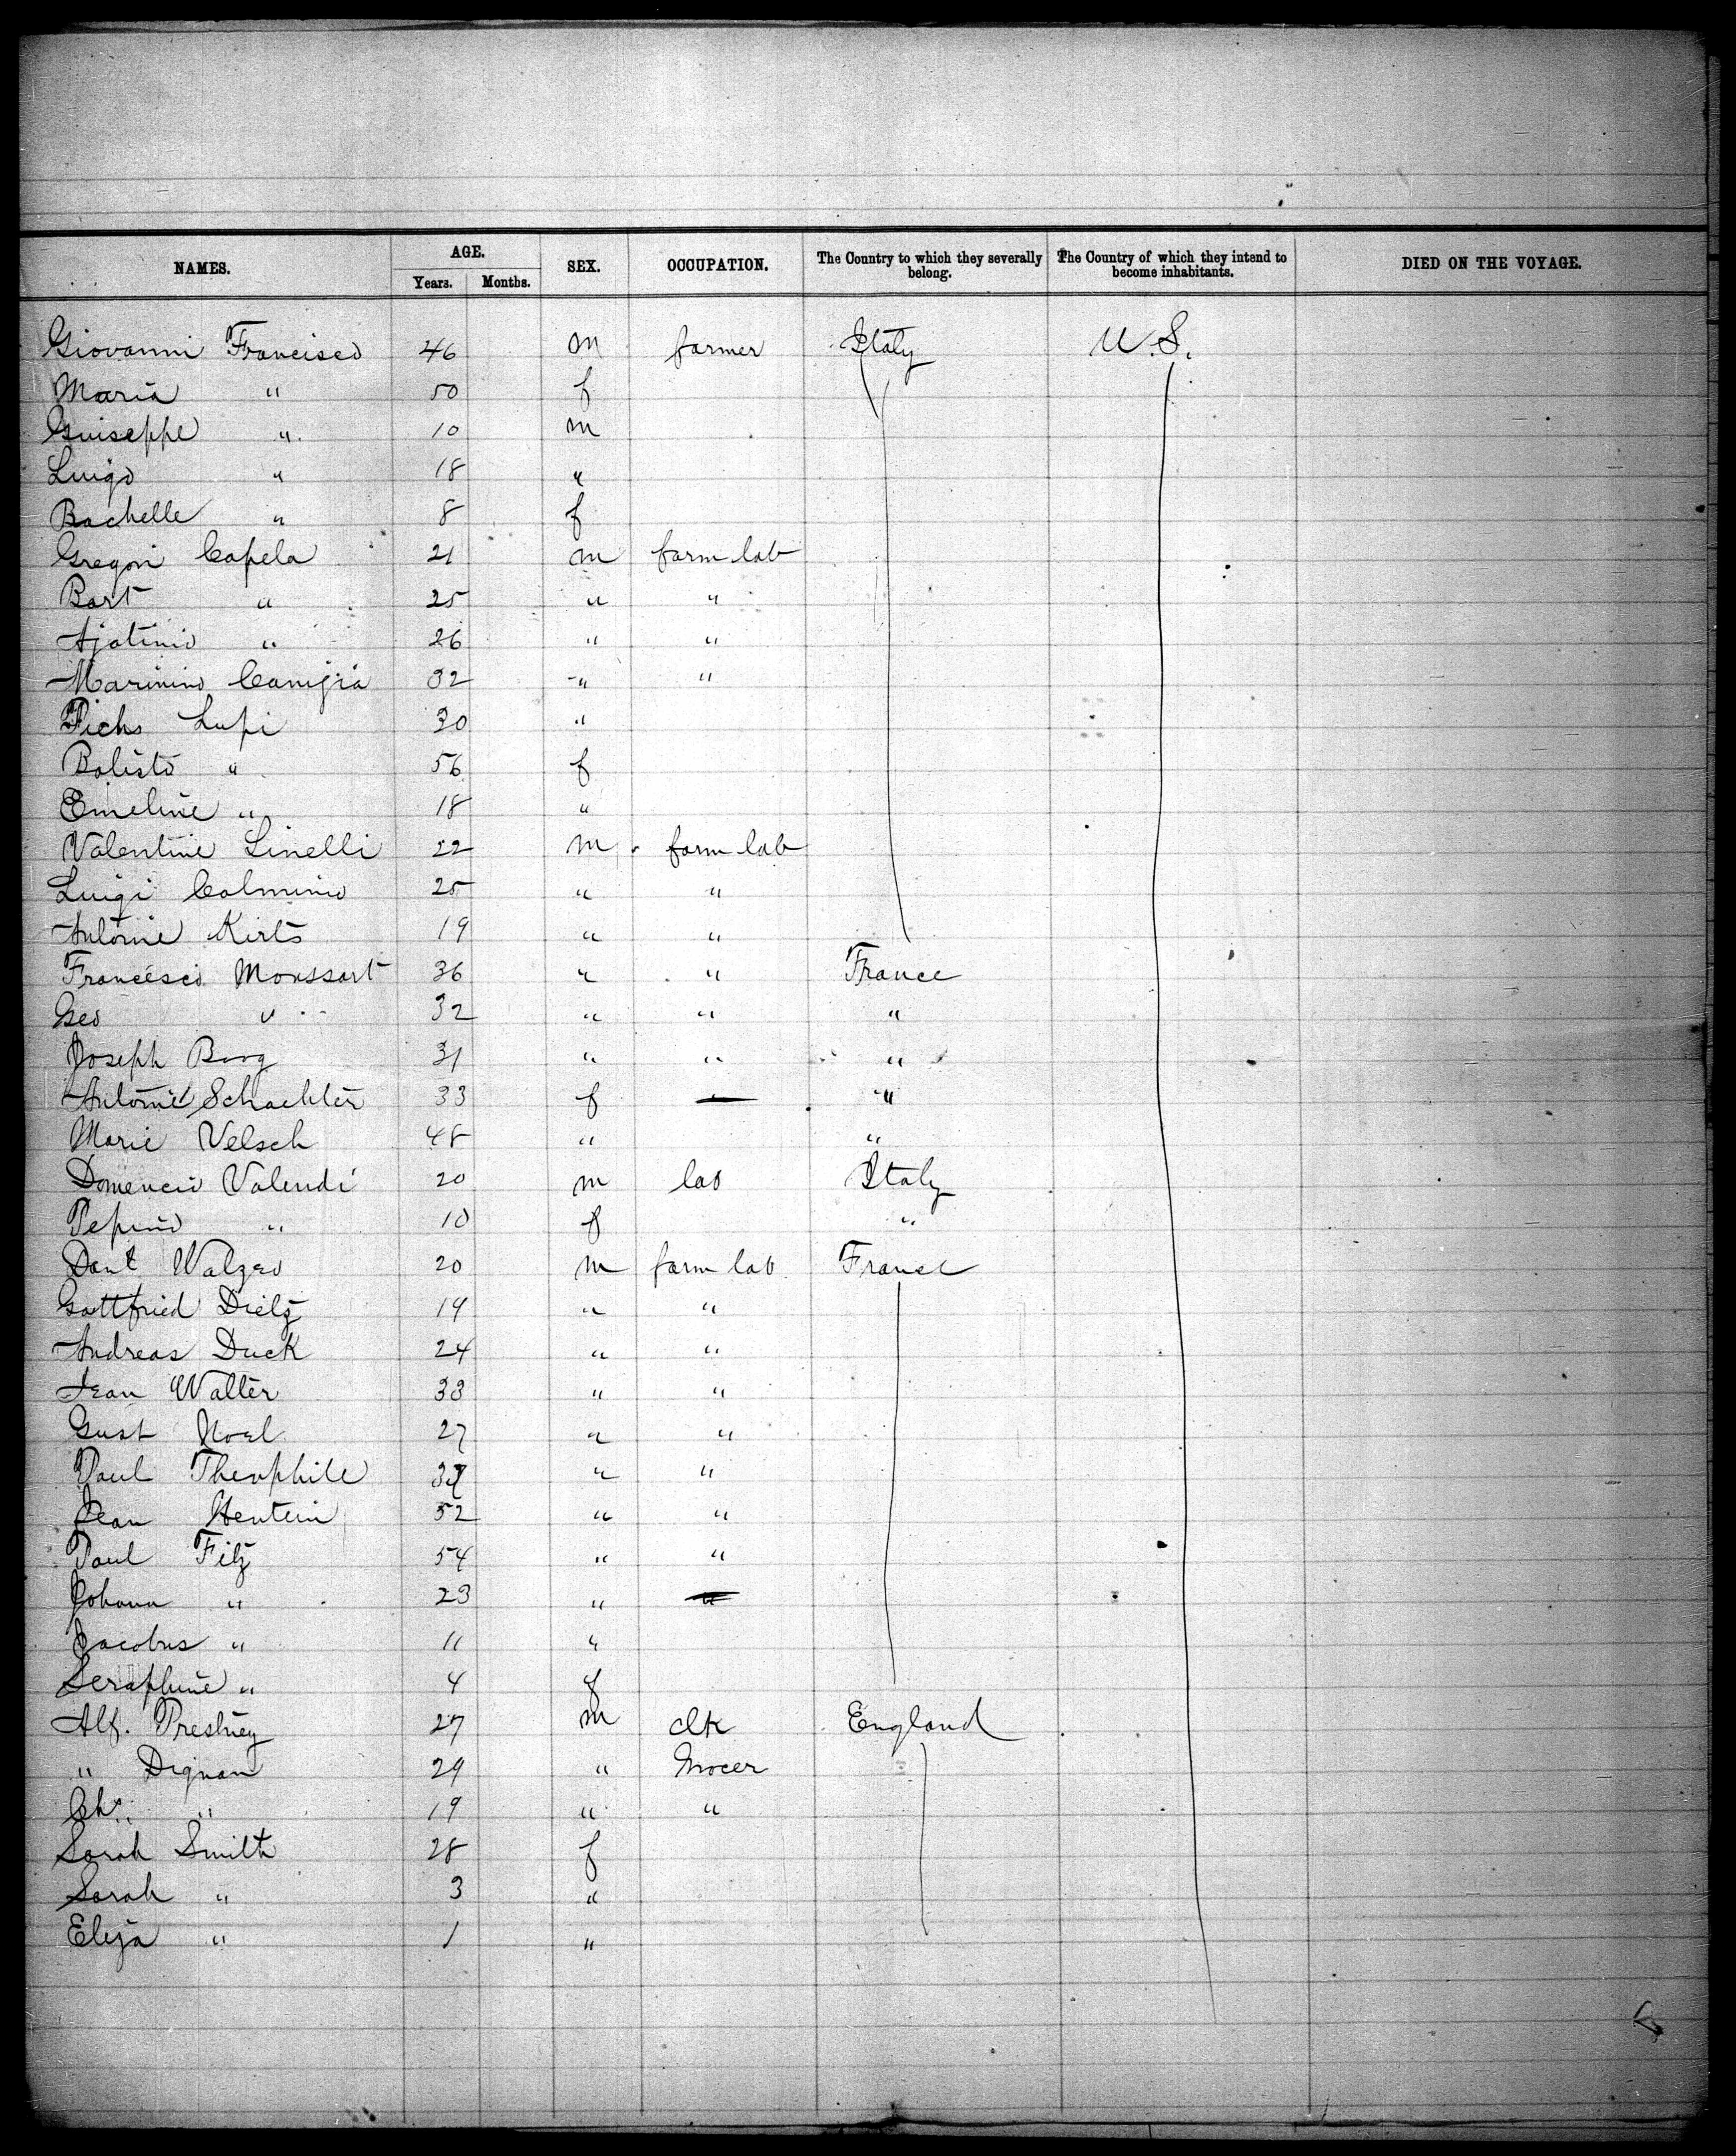 NAMES. AGE. SEX. OCCUPATION. The Country to which they severally belong. The Country of which they intend to become inhabitants. DIED ON THE VOYAGE.
Years. Months.
Giovanni Francisco 46 m farmer Italy U.S.
Maria " 50 f
Guiseppe " 10 m
Luigo " 18 "
Bachelle " 8 f
Gregori Capela 21 m farm lab
Bart " 25 " "
Ajotinio " 26 " "
Marinino Canijia 32 " "
Lupi 30 "
Bolisto " 56 f
Emeline " 18 "
Valentine Linelli 22 m farm lab
Luigi Colmino 25 " "
Antonie Kirts 19 " "
Francisco Monssart 36 " " France
Geo " 32 " " "
Joseph Borg 31 " " "
Antonie Schachter 33 f — "
Marie Velsch 48 " "
Domencio Valendi 20 m lab Italy
Pepino " 10 f "
Dant Walzer 20 m farm lab France
Gottfried Dielz 19 " "
Andreas Duck 24 " "
Jean Walter 33 " "
Gust Noel 27 " "
Paul Theophile " "
Jean Hentein 52 " "
Paul Filz 54 " "
Johann " 23 " "
Jacobus " 11 "
Seraphine " 4 f
Alf. Prestney 27 m clk England
" Dignan 29 " Grocer
Chs. " 19 " "
Sarah Smith 28 f
Sarah " 3 "
Eliza " 1 "